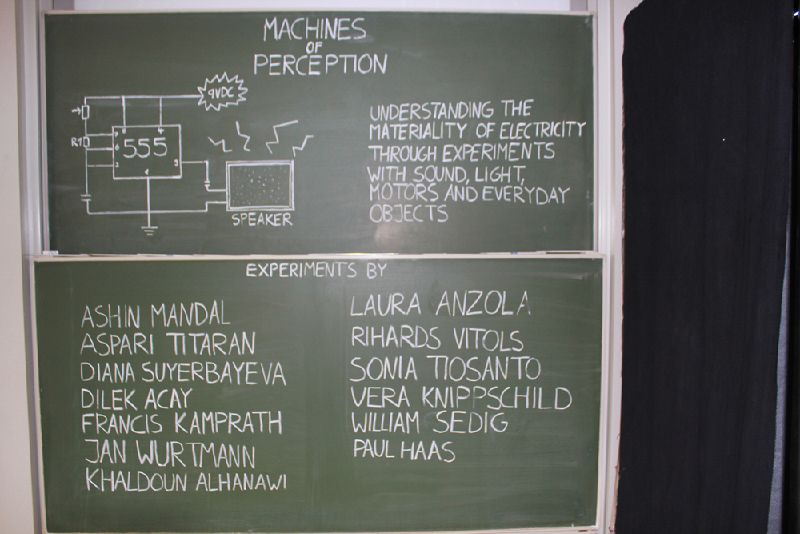 MACHINES
OF
PERCEPTION
9VDC
R1
555
SPEAKER
UNDERSTANDING THE
MATERIALITY OF ELECTRICITY
THROUGH EXPERIMENTS
WITH SOUND, LIGHT,
MOTORS AND EVERYDAY
OBJECTS
EXPERIMENTS BY
ASHIN MANDAL
ASPARI TITARAN
DIANA SUYERBAYEVA
DILEK ACAY
FRANCIS KAMPRATH
JAN WURTMANN
KHALDOUN ALHANAWI
LAURA ANZOLA
RIHARDS VITOLS
SONIA TIOSANTO
VERA KNIPPSCHILD
WILLIAM SEDIG
PAUL HAAS